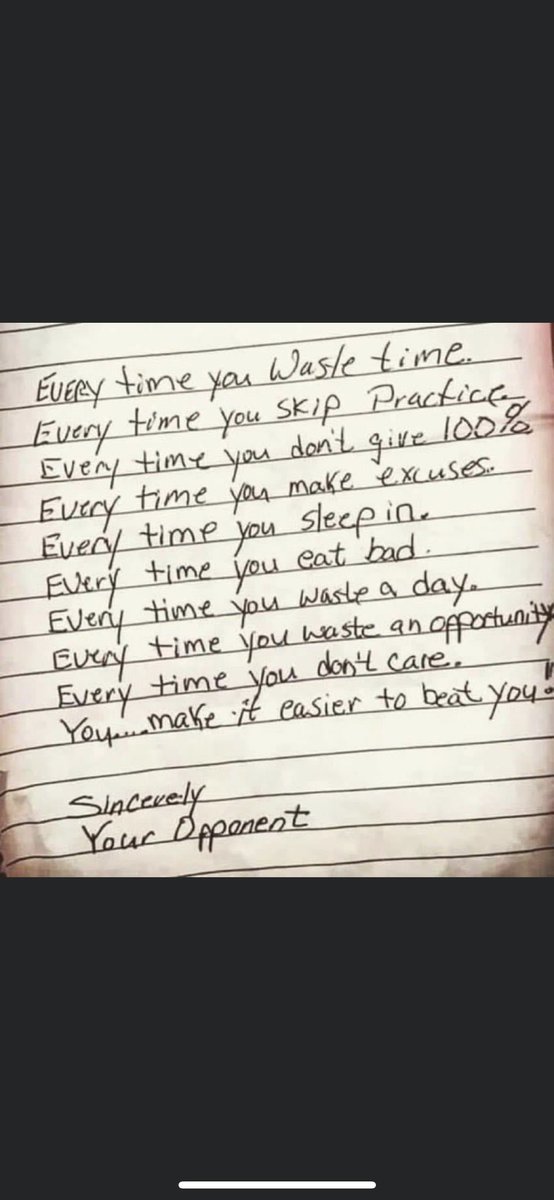 EVERY time you Waste time.
Every time you SKIP Practice
Every time you don't give 100%
Every time you make excuses.
Every time you sleep in.
Every time you eat bad.
Every time you waste a day.
Every time you waste an opportunity
Every time you don't care.
You.....make it easier to beat you!
Sincerely
Your Opponent